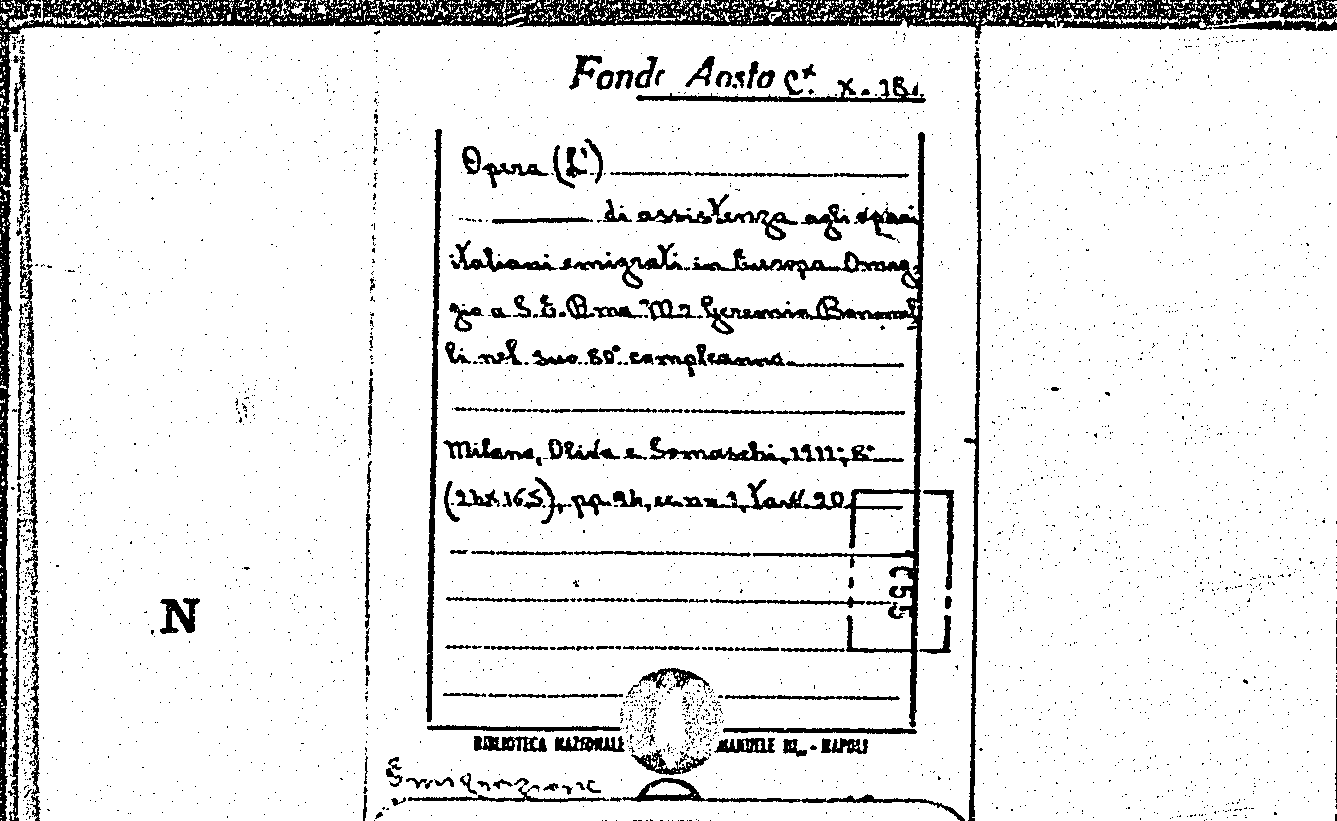 Fondo Aosta C.* X. 18.
Opera (L')
di assistenza agli operai
italiani emigrati in Europa. Omag-
gio a S. E. R.ma M.r Geremia Bonomel-
li nel suo 80° compleanno.
Milano, Oliva e Somaschi, 1911; 8°
(24x16.5), pp. 94, cc. nn 1, tavv. 20.
C55
N
BIBLIOTECA NAZIONALE MANUELE III - NAPOLI
Emigrazione